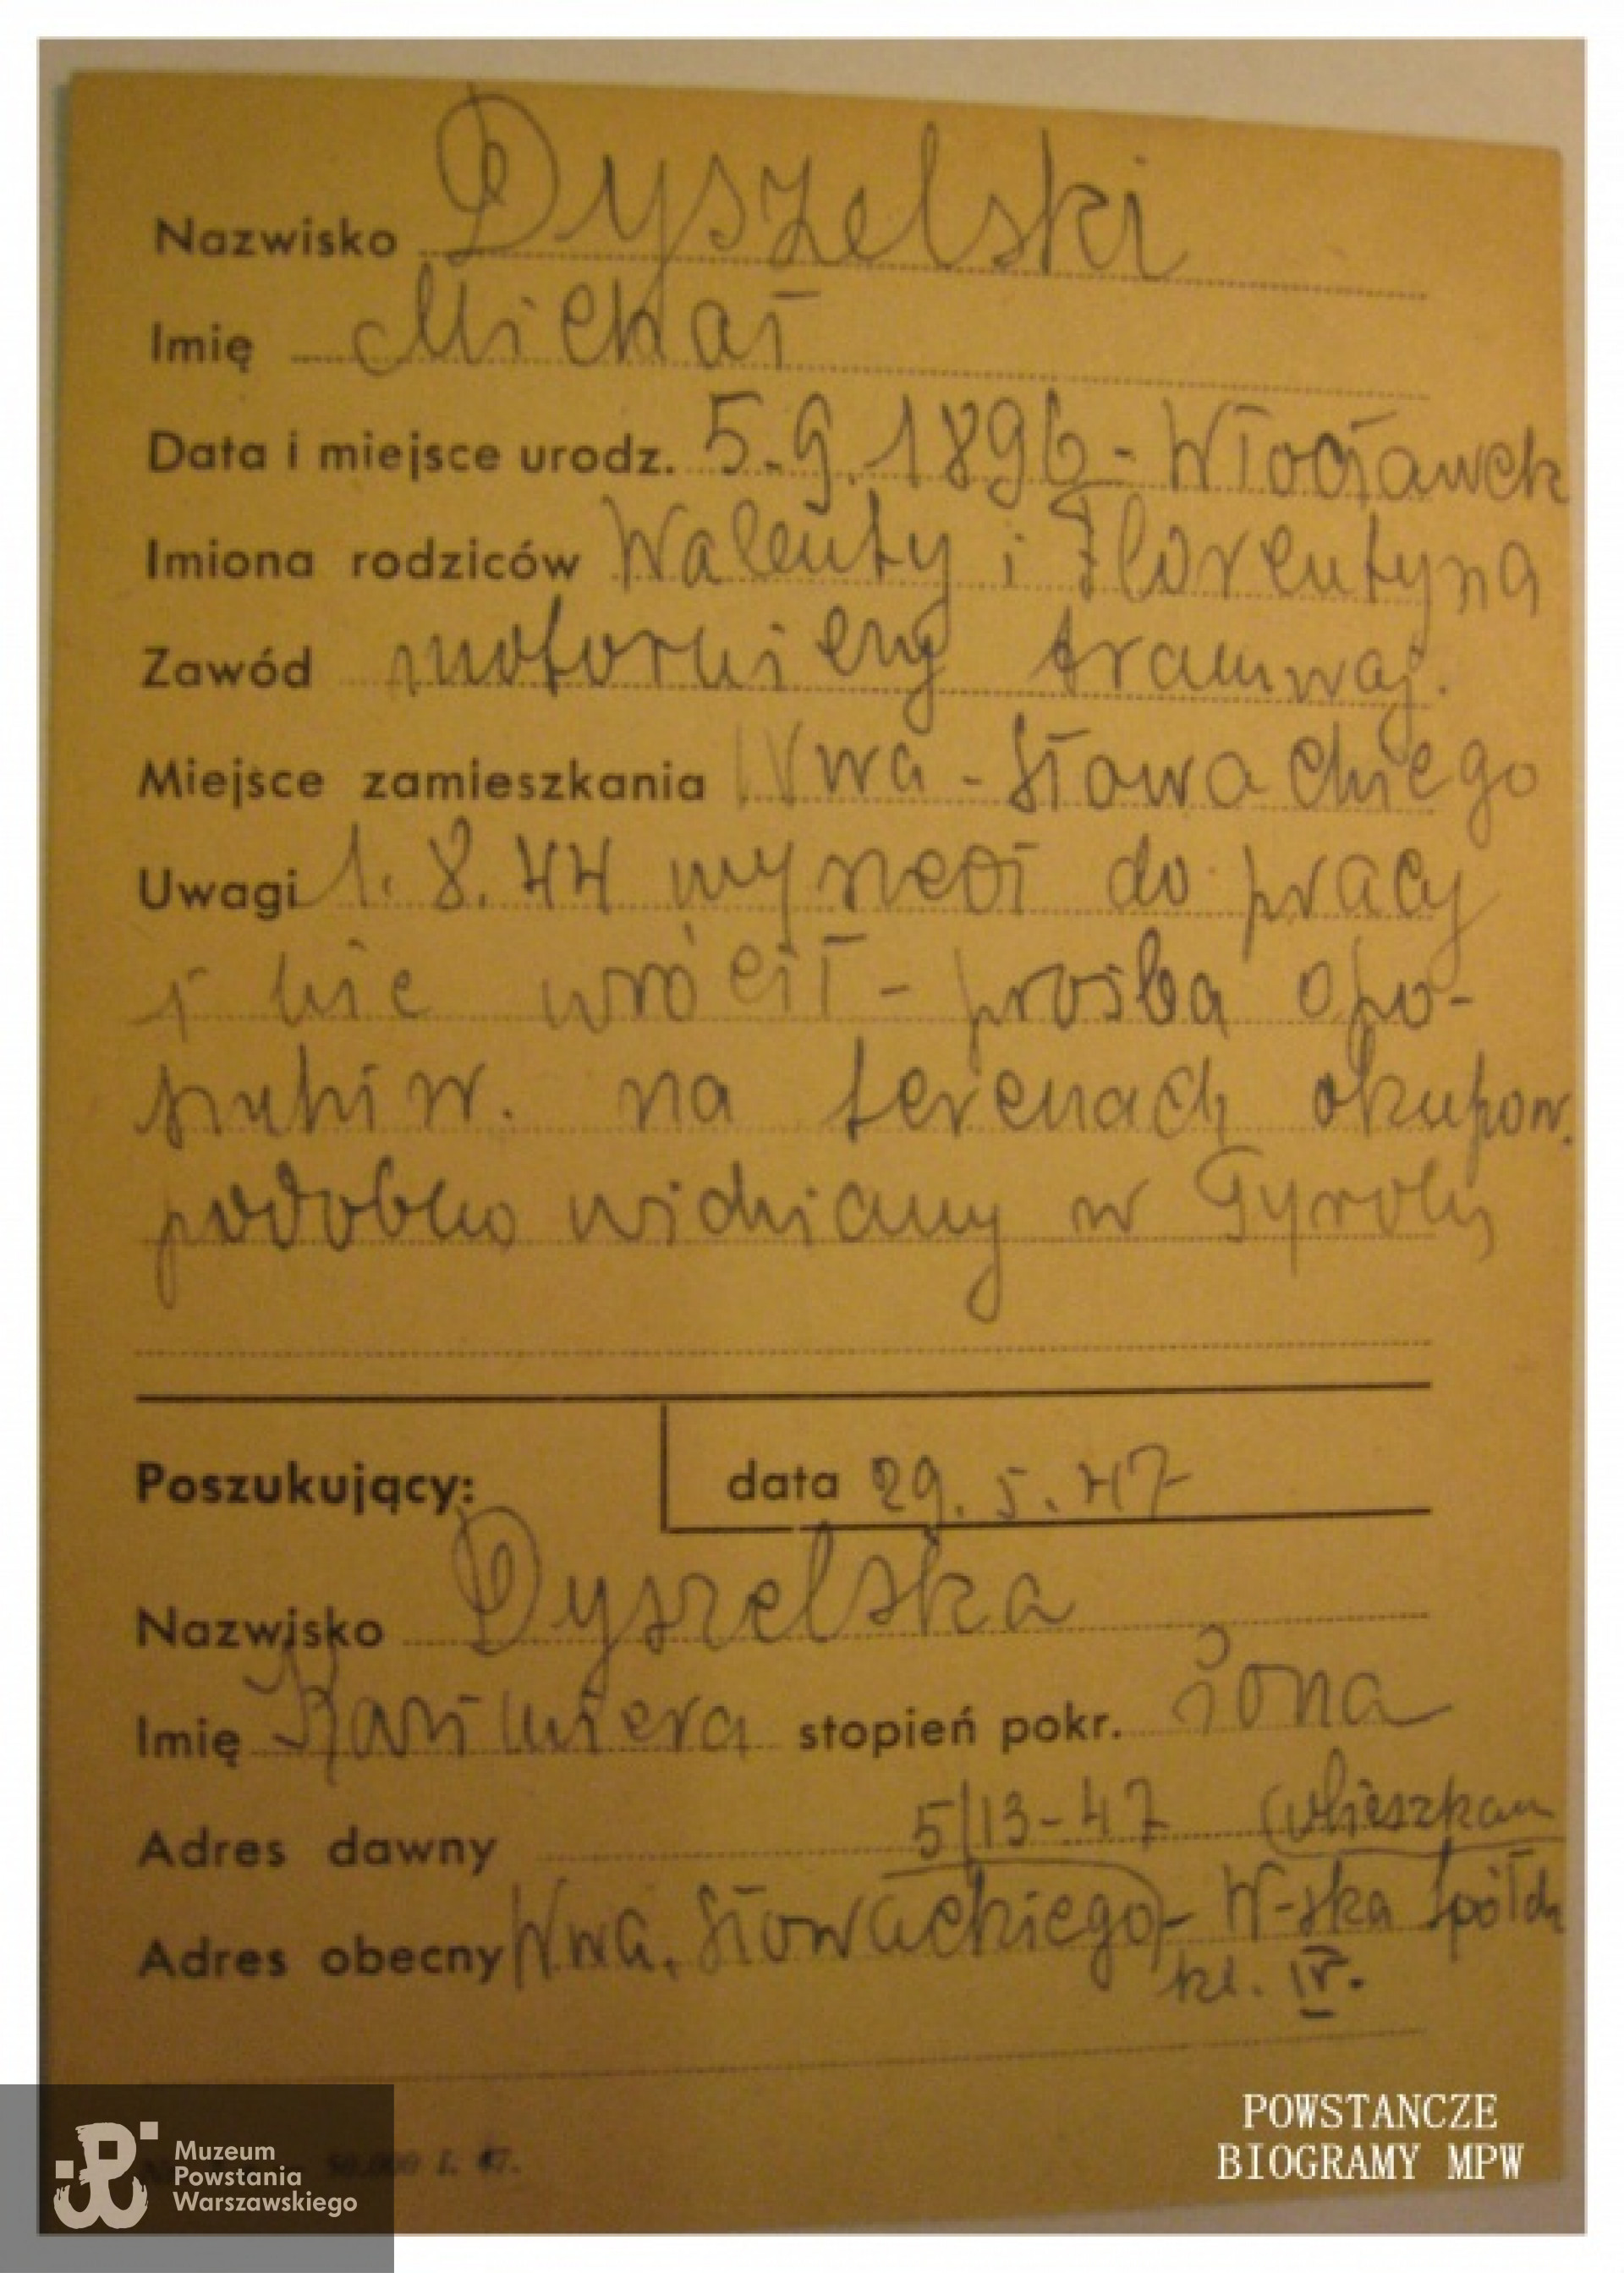 Nazwisko Dyszelski
Imię Michał
Data i miejsce urodz. 5.9.1896 - Włocławek
Imiona rodziców Walenty i Florentyna
Zawód motorniery tramwaj.
Miejsce zamieszkania Wwa - Słowackiego
Uwagi 1.8.44 wyszedł do pracy
i nie wrócił - prośba o po-
szukiw. na terenach okupow.
podobno widziany w Tyrolu
Poszukujący: data 29.5.47
Nazwisko Dyszelska
Imię Kazimiera stopień pokr. żona
Adres dawny 5/13-47 (Mieszkan
Adres obecny Wwa, Słowackiego - W-ska Spółdz
kl. IV.
50.000 I. 47.
Muzeum
Powstania
Warszawskiego
POWSTANCZE
BIOGRAMY MPW